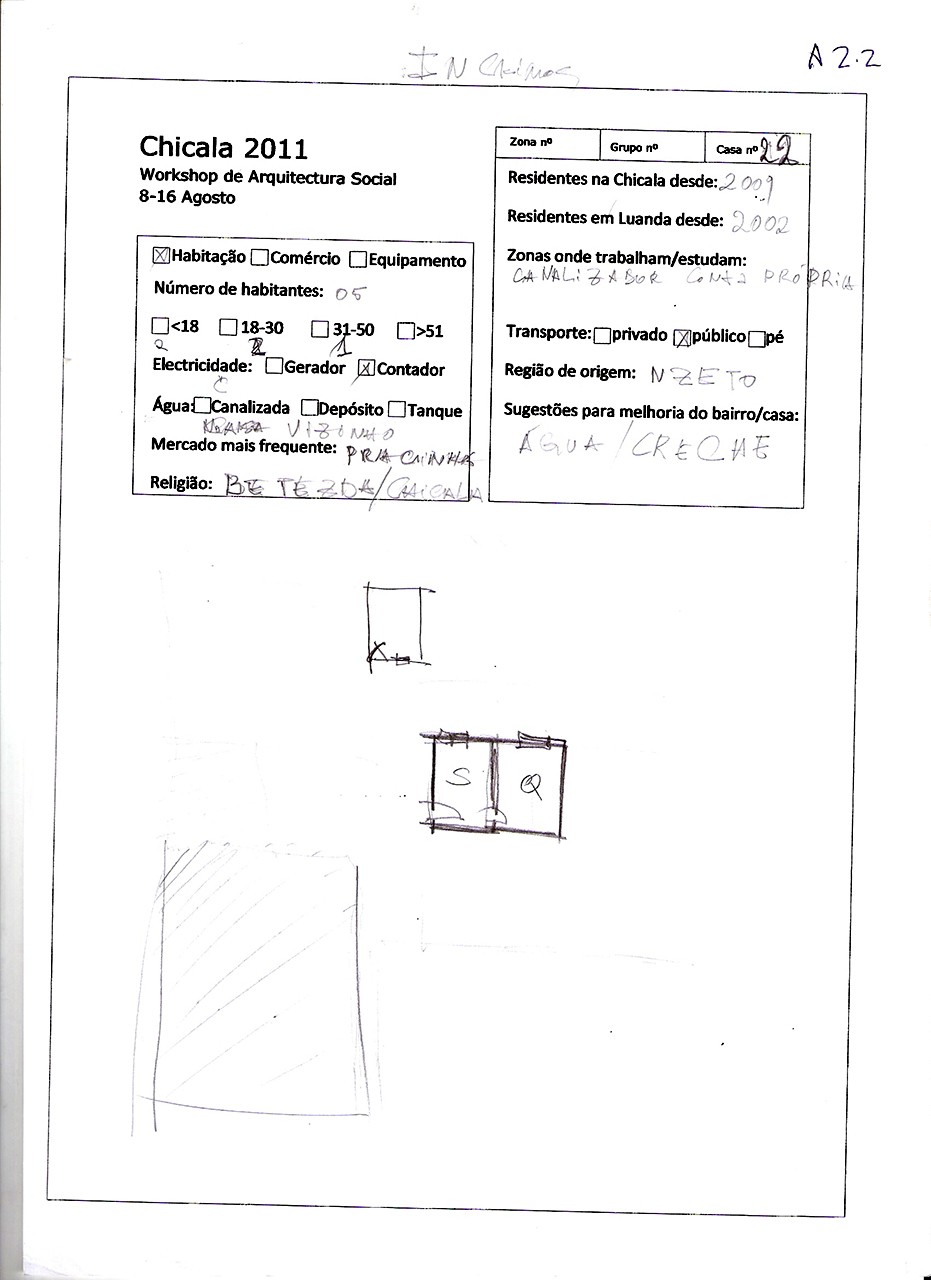 A 2.2
IN
Chicala 2011
Workshop de Arquitectura Social
8-16 Agosto
☒Habitação ☐Comércio ☐Equipamento
Número de habitantes: 05
☐<18 ☐18-30 ☐31-50 ☐>51
2 2 1
Electricidade: ☐Gerador ☒Contador
C
Água:☐Canalizada ☐Depósito ☐Tanque
VIZINHO
Mercado mais frequente: PRACINHA
Religião: BETEZDA/CHICALA
Zona nº Grupo nº Casa nº 22
Residentes na Chicala desde: 2009
Residentes em Luanda desde: 2002
Zonas onde trabalham/estudam:
CANALIZADOR CONTA PRÓPRIA
Transporte: ☐privado ☒público ☐pé
Região de origem: NZETO
Sugestões para melhoria do bairro/casa:
ÁGUA/CRECHE
S Q